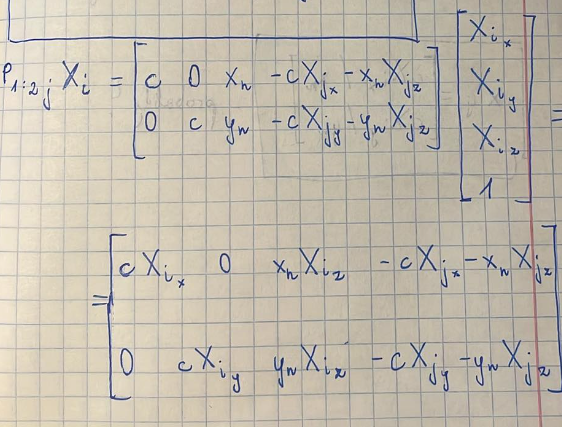 P₁:₂ⱼ Xᵢ = [ c 0 xₙ -cX_{j_x} - xₙX_{j_z} ] [ X_{i_x} ]
[ 0 c yₙ -cX_{j_y} - yₙX_{j_z} ] [ X_{i_y} ] =
[ X_{i_z} ]
[ 1 ]
= [ cX_{i_x} 0 xₙX_{i_z} -cX_{j_x} - xₙX_{j_z} ]
[ 0 cX_{i_y} yₙX_{i_z} -cX_{j_y} - yₙX_{j_z} ]